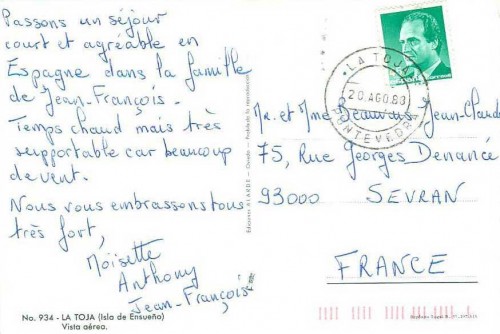 Passons un séjour
court et agréable en
Espagne dans la famille
de Jean-François.
Temps chaud mais très
supportable car beaucoup
de vent.
Nous vous embrassons tous
très fort,
Noisette
Anthony
Jean-François
No. 934 - LA TOJA (Isla de Ensueño)
Vista aérea.
LA TOJA
20 AGO.88
PONTEVEDRA
Mr. et Mme Beauvais Jean-Claude
75, Rue Georges Denancé
93000 SEVRAN
FRANCE